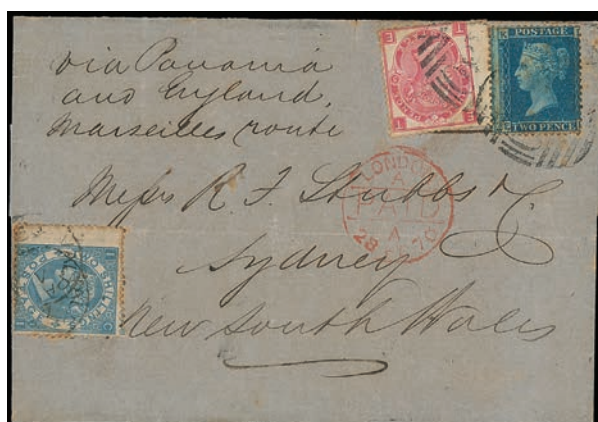 via Panama
and England,
Marseilles route
POSTAGE
TWO PENCE
LONDON
A
PAID
28 70
Messrs R. F. Stubbs & C
Sydney
New South Wales
POSTAGE TWO SHILLINGS